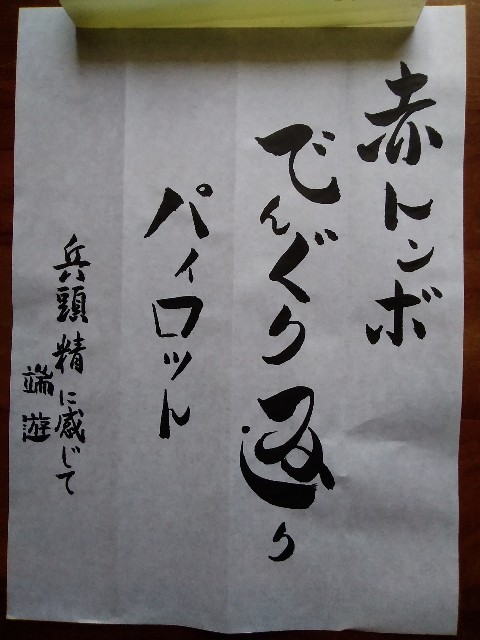 赤トンボ
でんぐり返り
パイロット
兵頭精に感じて
端遊